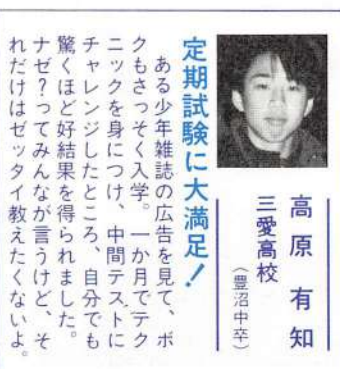 高原有知
三愛高校
（豊沼中卒）
定期試験に大満足！
ある少年雑誌の広告を見て、ボ
クもさっそく入学。一か月でテク
ニックを身につけ、中間テストに
チャレンジしたところ、自分でも
驚くほど好結果を得られました。
ナゼ？ってみんなが言うけど、そ
れだけはゼッタイ教えたくないよ。